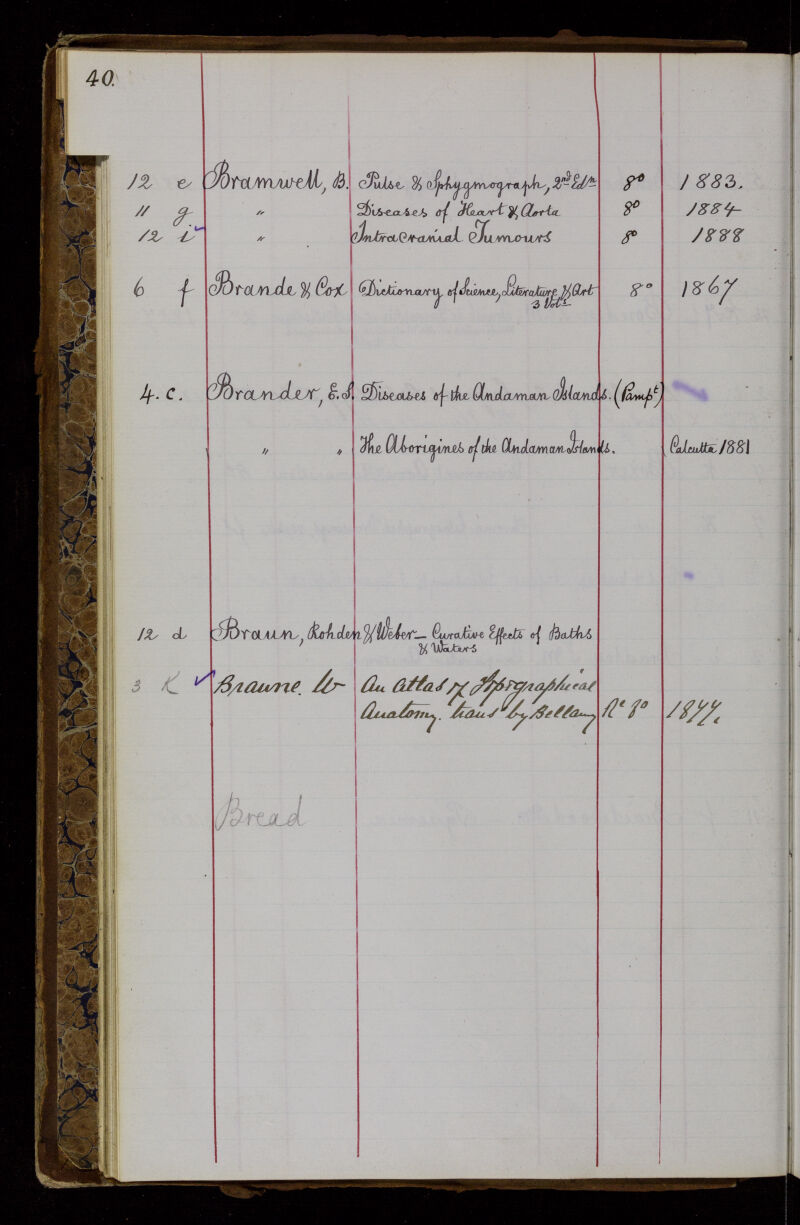 40.
12 e Bramwell, B. Pulse & Sphygmograph, 2nd Edn 8o 1883.
11 g " Diseases of Heart & Aorta 8o 1884
12 i " Intracranial Tumours 8o 1888
6 f Brande & Cox Dictionary of Science, Literature & Art 8o 1867
3 Vols
4. c. Brander, E.S. Diseases of the Andaman Islands. (Pampt)
" " The Aborigines of the Andaman Islands. Calcutta 1881
12 d Braun, Rohden & Weber — Curative Effects of Baths
& Waters
3 K Braune. W An Atlas of Topographical
Anatomy. trans by Bellamy Rl 8o 1877.
Bread